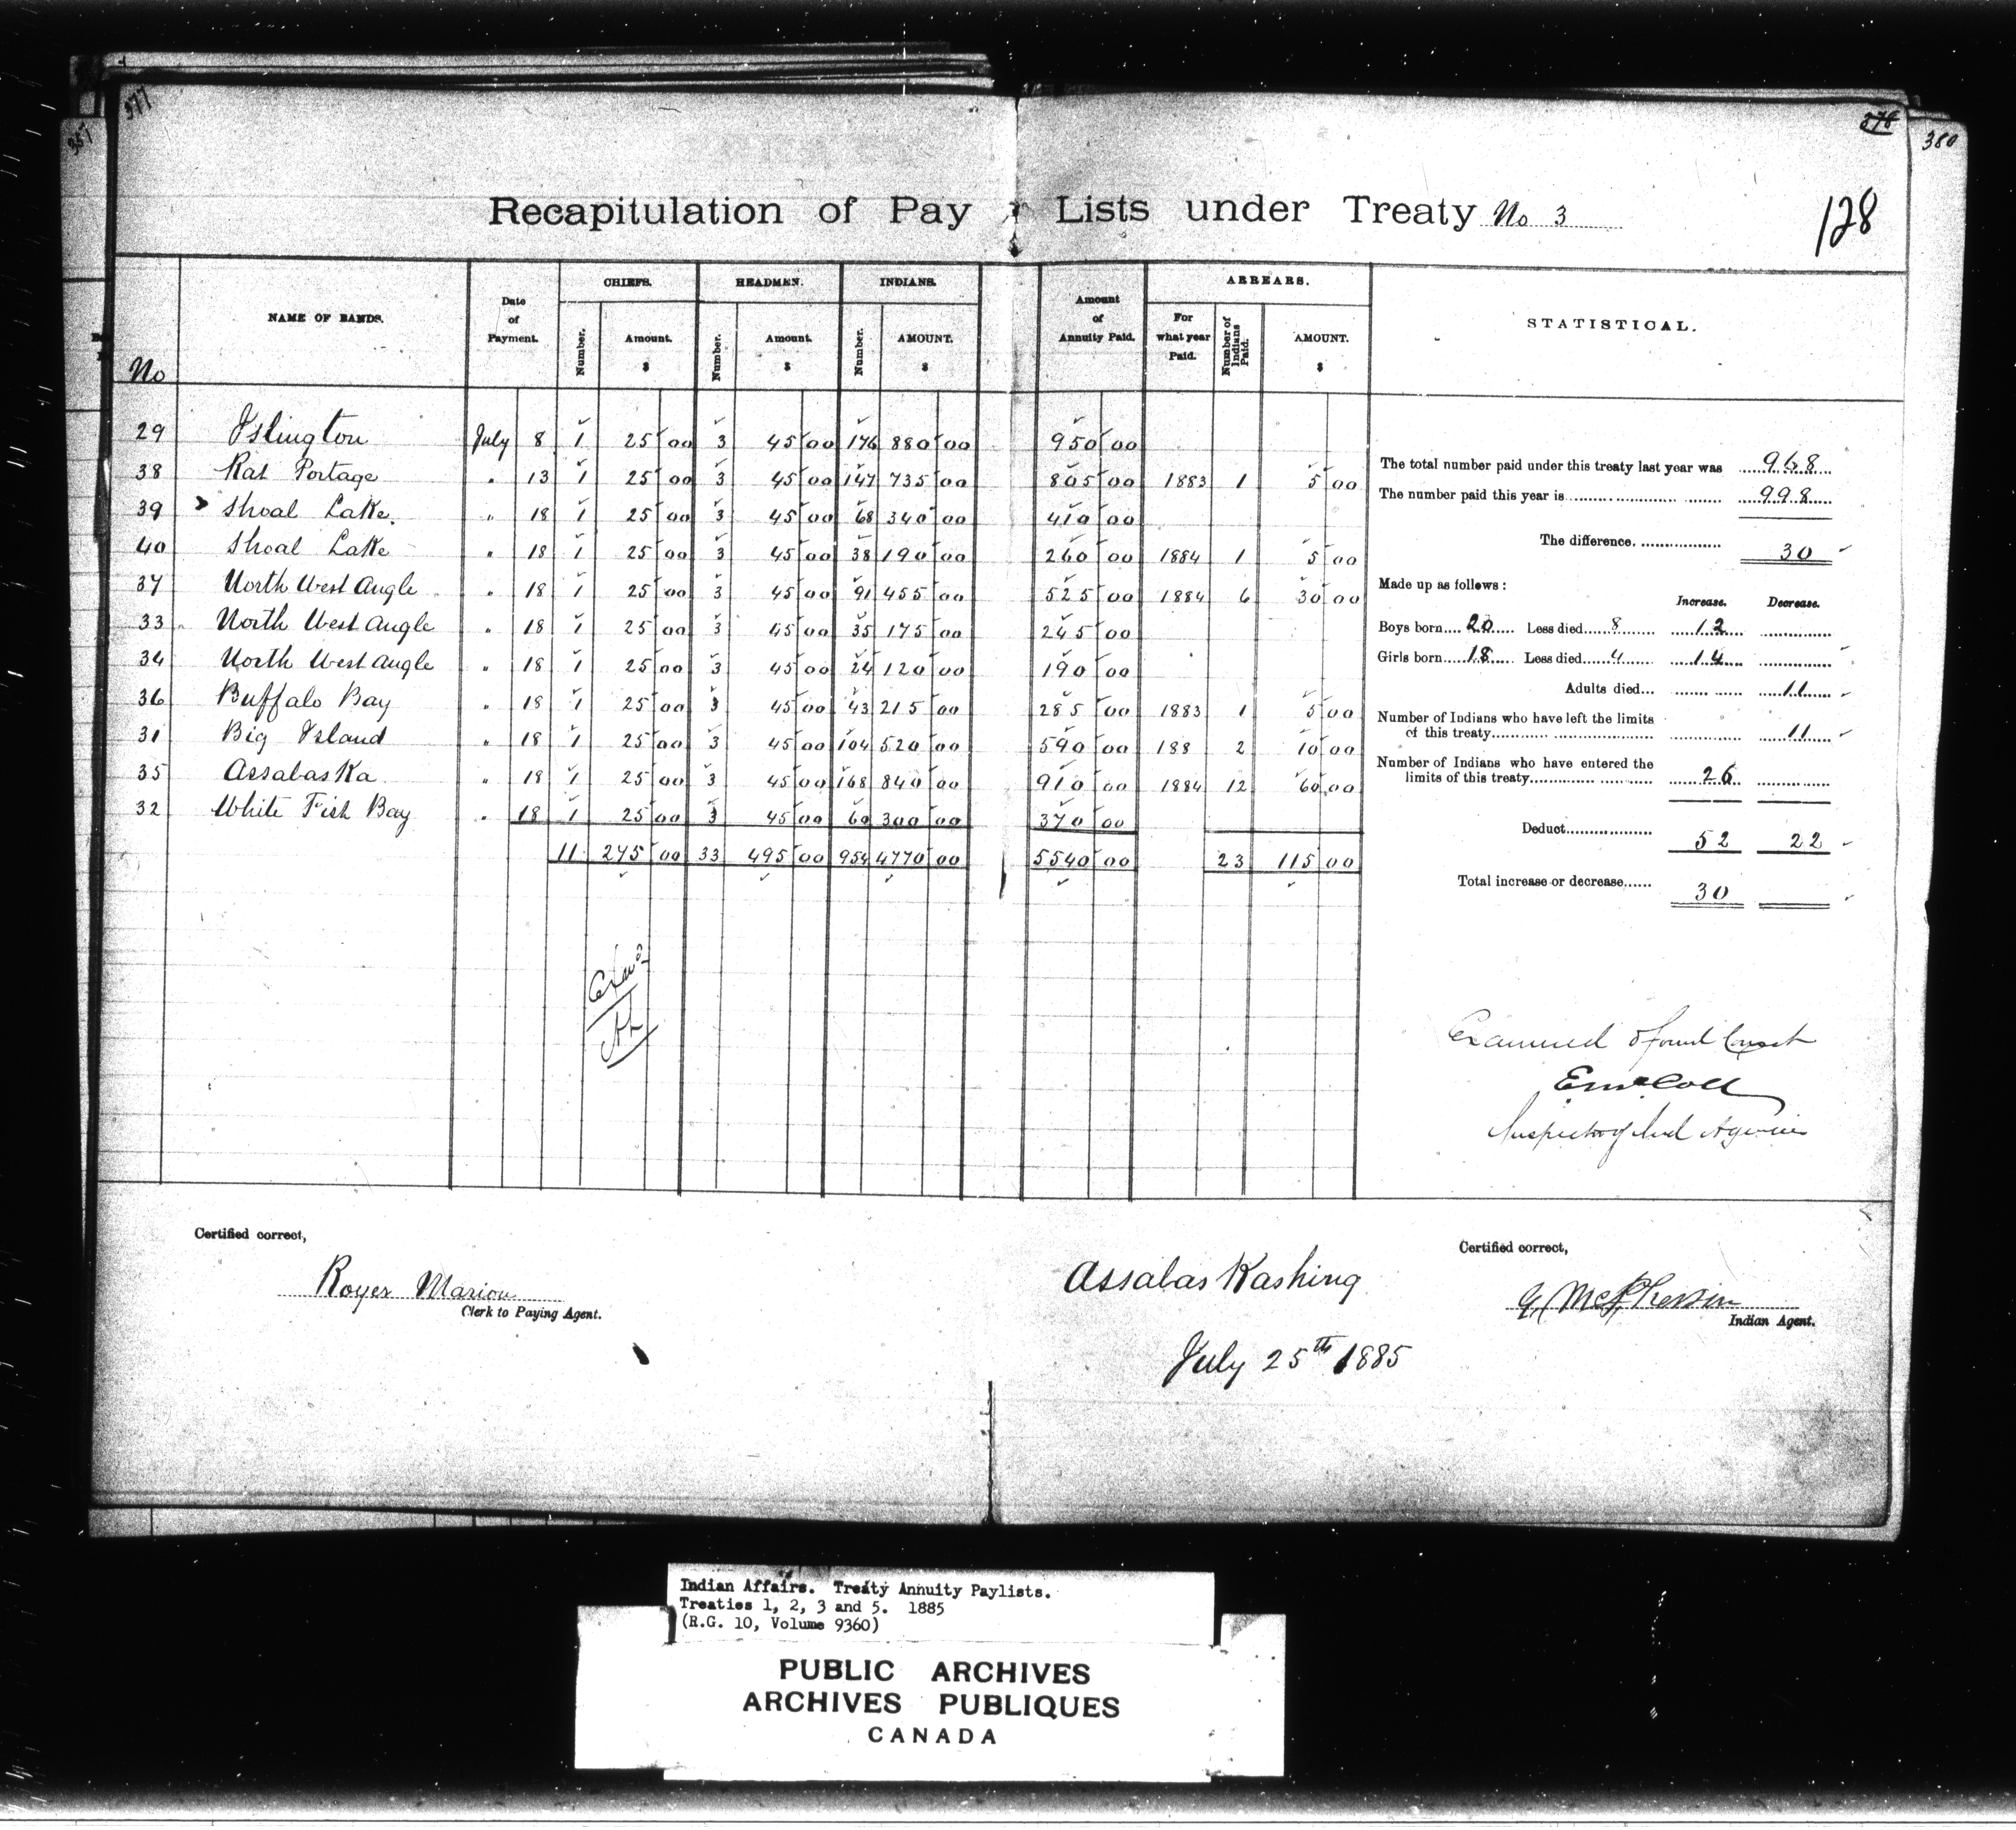 377
357
378
380
Recapitulation of Pay Lists under Treaty No 3
128
No
NAME OF BANDS.
Date of Payment.
CHIEFS.
Number.
Amount. $
HEADMEN.
Number.
Amount. $
INDIANS.
Number.
AMOUNT. $
Amount of Annuity Paid.
ARREARS.
For what year Paid.
Number of Indians Paid.
AMOUNT. $
STATISTICAL.
29 Islington July 8 1 25 00 3 45 00 176 880 00 950 00
38 Rat Portage " 13 1 25 00 3 45 00 147 735 00 805 00 1883 1 5 00
39 Shoal Lake. " 18 1 25 00 3 45 00 68 340 00 410 00
40 Shoal Lake " 18 1 25 00 3 45 00 38 190 00 260 00 1884 1 5 00
37 North West Angle " 18 1 25 00 3 45 00 91 455 00 525 00 1884 6 30 00
33 North West Angle " 18 1 25 00 3 45 00 35 175 00 245 00
34 North West Angle " 18 1 25 00 3 45 00 24 120 00 190 00
36 Buffalo Bay " 18 1 25 00 3 45 00 43 215 00 285 00 1883 1 5 00
31 Big Island " 18 1 25 00 3 45 00 104 520 00 590 00 188 2 10 00
35 Assabaska " 18 1 25 00 3 45 00 168 840 00 910 00 1884 12 60 00
32 White Fish Bay " 18 1 25 00 3 45 00 60 300 00 370 00
11 275 00 33 495 00 954 4770 00 5540 00 23 115 00
The total number paid under this treaty last year was 968
The number paid this year is 998
The difference. 30
Made up as follows :
Increase. Decrease.
Boys born 20 Less died 8 12
Girls born 18 Less died 4 14
Adults died... 11
Number of Indians who have left the limits
of this treaty 11
Number of Indians who have entered the
limits of this treaty 26
Deduct 52 22
Total increase or decrease 30
Examined & found Correct
E McColl
Inspector of Ind Agencies
Certified correct,
Royer Marion
Clerk to Paying Agent.
Assabas Kashing
July 25th 1885
Certified correct,
G McPherson
Indian Agent.
Indian Affairs. Treaty Annuity Paylists.
Treaties 1, 2, 3 and 5. 1885
(R.G. 10, Volume 9360)
PUBLIC ARCHIVES
ARCHIVES PUBLIQUES
CANADA